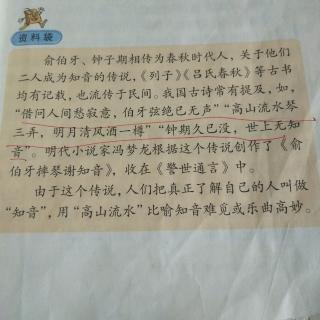 资料袋
俞伯牙、钟子期相传为春秋时代人，关于他们
二人成为知音的传说，《列子》《吕氏春秋》等古书
均有记载，也流传于民间。我国古诗常有提及，如，
“借问人间愁寂意，伯牙弦绝已无声”“高山流水琴
三弄，明月清风酒一樽”“钟期久已没，世上无知
音”。明代小说家冯梦龙根据这个传说创作了《俞
伯牙摔琴谢知音》，收在《警世通言》中。
由于这个传说，人们把真正了解自己的人叫做
“知音”，用“高山流水”比喻知音难觅或乐曲高妙。